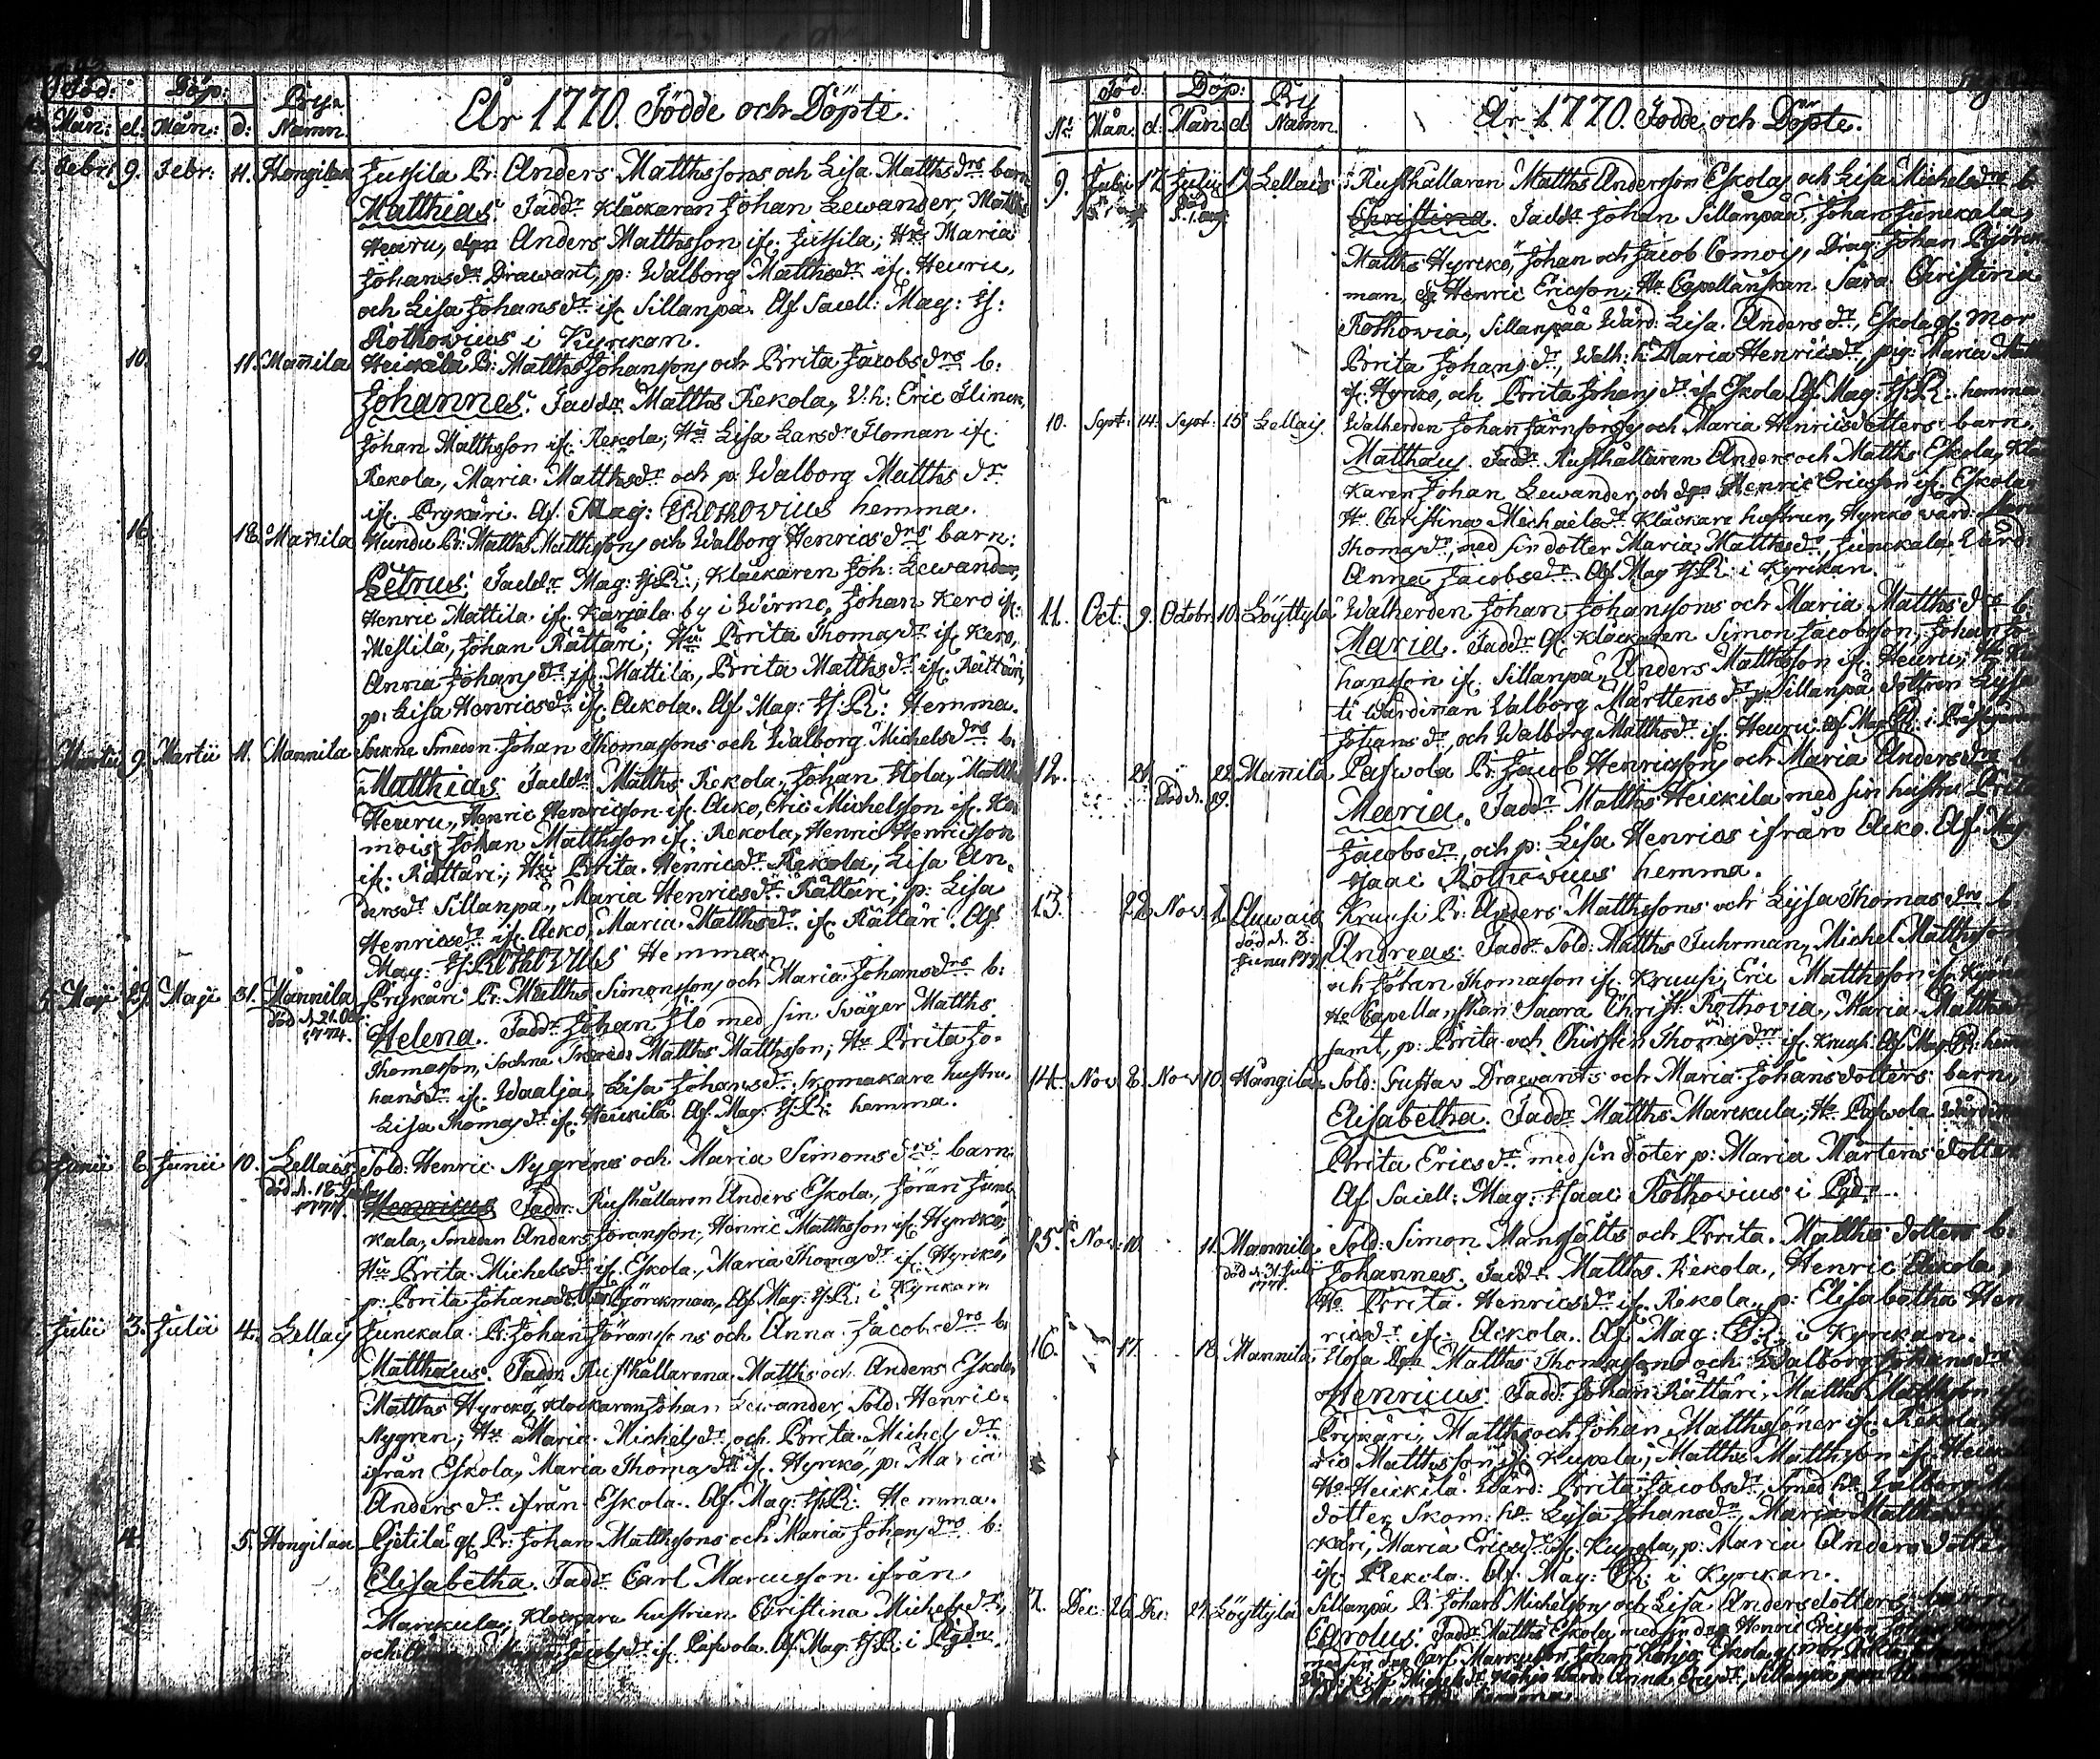 Föd: Döp: Bys
Mån: d: Mån: d: Namn.
År 1770. Födde och Döpte.
1. Febr: 9. Febr: 11. Hongilan Jussila Br: Anders Matthssons och Lisa Matths drs barn
Matthias. Faddr Klåckaren Johan Lewander, Matths
Heuru, Anders Matthsson if. Jussila; Hu Maria
Johansdr Drawant, p: Walborg Matthsdr if. Heuru,
och Lisa Johansdr if Sillanpä. Af Sacell: Mag: H:
Rothovius i Kyrckan.
2. 10. 11. Mannila Heickilä Br: Matths Johanssons och Brita Jacobs drs b:
Johannes. Faddr Matths Rekola, Eric
Johan Matthsson if. Rekola; Hu Lisa Larsdr if.
Rekola, Maria Matthsdr och p. Walborg Matths dr
if. Prykäri. Af Mag: Rothovius hemma.
16. 18. Mannila Hundu Br: Matths Matthssons och Walborg Henricsdrs barn:
Petrus. Faddr Mag: H:R:, Klåckaren Joh: Lewander,
Henric Mattila if. Karjala by i Wirmo, Johan Kero if:
Johan Rättäri; Hu Brita Thomasdr if. Kero,
Anna Johans dr if. Mattila, Brita Matthsdr if. Rättäri,
p: Lisa Henricsdr if. Ackola. Af Mag: H:R: Hemma.
Martii 9. Martii 11. Mannila Sockne Smeden Johan Thomassons och Walborg Michelsdrs b:
Matthias. Faddr Matths Rekola, Johan Hola, Matths
Heuru, Henric Henricsson if. Acko, Eric Michelsson if. Ko
mois, Johan Matthsson if. Rekola, Henric Henricsson
if. Rättäri; Hu Brita Henricsdr Rekola, Lisa An-
dersdr Sillanpä, Maria Henricsdr Rättäri; p: Lisa
Henricsdr if. Acko, Maria Matthsdr if. Rättäri. Af
Mag: H: Rothovius Hemma.
5. Maji 29. Maji 31. Mannila Prykäri Br: Matths Simonssons och Maria Johansdrs b:
död d. 21. Oct
1774.
Helena. Faddr Johan Ilo med sin Swåger Matths
Thomasson, Sochne Matths Matthsson; Hu Brita Jo-
hansdr if. Waalja, Lisa Johansdr Skomakare hustru
Lisa Thomasdr if. Heickilä. Af. Mag: H:R: hemma.
6. Junii 8. Junii 10. Lellais Sold: Henric Nygrens och Maria Simons drs barn:
död d. 18
1771.
Henricus. Faddr: Rusthållaren Anders Eskola, Jöran Junc
kala, Smeden Anders Joransson, Henric Matthsson if. Hyrckö,
Hu Brita Michelsdr if. Eskola, Maria Thomasdr if. Hyrckö,
p: Brita Johansdr Björckman, Af Mag: H:R: i Kyrckan
Julii 3. Julii 4. Lellais Junckala Br: Johan Jöranssons och Anna Jacobsdrs b:
Matthaus. Faddr Rusthållarena Matths och Anders Eskola,
Matths Hyrckö, Klockaren Johan Lewander, Sold: Henric
Nygren; Hu Maria Michelsdr och Brita Michelsdr
ifrån Eskola, Maria Thomasdr if. Hyrckö, p: Maria
Anders dr ifrån Eskola. Af Mag: H:R: Hemma.
4. 5. Hongilan Pjetilä gf. Br: Johan Matthssons och Maria Johansdrs b:
Elisabetha. Faddr Carl Marcusson ifrån
Marckula; Klockare hustrun Christina Michelsdr,
och Jacobsdr if Pafwola. Af Mag: H:R: i Pgdn.
Föd. Döp: By
No Mån. d. Mån. d. Namn.
År 1770. Födde och Döpte.
9. Julii 17. Julii 19. Lellais Rusthållaren Matths Andersson Eskolas och Lisa Michelsdrs b.
Död
d. 1. aug.
Christina. Faddr Johan Sillanpää, Johan Junckala,
Matths Hyrckö, Johan och Jacob Comois, Drag: Johan Björck
man, Henric Ericsson; Hu Capellanskan Sara Christina
Rothovia, Sillanpää Wärd: Lisa Andersdr, Eskola gl: Mor
Brita Johansdr, Walh: h: Maria Henricsdr, pig: Maria
if. Hyrckö, och Brita Johans dr if Eskola. Af Mag: H:R: hemma
10. Sept: 14. Sept: 15 Lellais. Walherden Johan Järnforss och Maria Hinricsdotters barn.
Matthaus. Faddr Rusthållaren Anders och Matths Eskola, Klå
karen Johan Lewander, och Henric Ericsson if. Eskola
Hu Christina Michaelsdr Klåckare hustrun, Hyrckö wärd:
Thomasdr, med sin dotter Maria Matthsdr, Junckala Wärd
Anna Jacobsdr. Af Mag H:R: i Kyrckan.
11. Oct: 9. Octobr: 10. Löyttylä Walherden Johan Johanssons och Maria Matths drs b.
Maria. Faddr Gl. Klåckaren Simon Jacobsson, Johan Jo-
hansson if. Sillanpä, Anders Matthsson if. Heuru;
ti Wärdinnan Walborg Mårtensdr, p. Sillanpä dottren Lysa
Johansdr, och Walborg Matthsdr if. Heuru. Af Mag H:R: i Prästgården
12. 21. 22. Mannila Pafwola Br. Jacob Henricssons och Maria Andersdrs b
Död d. 29.
Maria. Faddr Matths Heickilä med sin hustru Brita
Jacobsdr, och p: Lisa Henrics ifrån Acko. Af Mag
Isaac Rothovius hemma.
13. 28. Nov. 1. Auwais Kruusi Br: Anders Matthssons och Lysa Thomas drs b.
död d. 8.
Junii 1771
Andreas. Faddr Sold: Matths Fuhrman, Michel Matthsson
och Johan Thomasson if. Kruusi, Eric Matthsson if.
Hu Capellanskan Saara Christ: Rothovia, Maria Matthsdr
samt, p: Brita och Christin Thomasdrr if. Kruusi. Af Mag H:R: hem
14. Nov. 8. Nov. 10. Hångilan Sold: Gustav Drawants och Maria Johansdotters barn.
Elisabetha. Faddr Matths Marckula; Hu Pafwola Wärdinna
Brita Ericsdr med sin doter p: Maria Mårtens dotter
Af Sacell: Mag: Isaac Rothovius i Pgdn.
15. Nov. 10. 11. Mannila Sold: Simon Manfälts och Brita Matths dotters b.
död d. 31. Julii
1771.
Johannes. Faddr Matths Rekola, Henric Ackola,
Hu Brita Henricsdr if. Rekola, p: Elisabetha Hen
ricsdr if. Ackola. Af Mag: H:R: i Kyrckan.
16. 17. 18. Mannila Matths Thomassons och Walborg Johansdrs
Henricus. Faddr Johan Rättäri, Matths Matthsson if
Prykäri, Matths och Johan Matthssöner if. Rekola,
ric Matthsson if. Kupela, Matths Matthsson if. Heick
Hu Heickilä Wärd: Brita Jacobsdr, Smed hu Walborg
dotter, Skom: hu Lysa Johansdr, Maria Matthsdr
käri, Maria Ericsdr if. Kupela, p: Maria Anders dotter
if. Rekola. Af. Mag: H:R: i Kyrckan.
17. Dec: 26. Dec: 27. Löyttylä Sillanpä Br: Johan Michelssons och Lisa Andersdotters barn
Carolus. Faddr Matths Eskola med sin drg Henric Ericsson, Johan
Carl Marcusson, Johan Eskola gl. mor